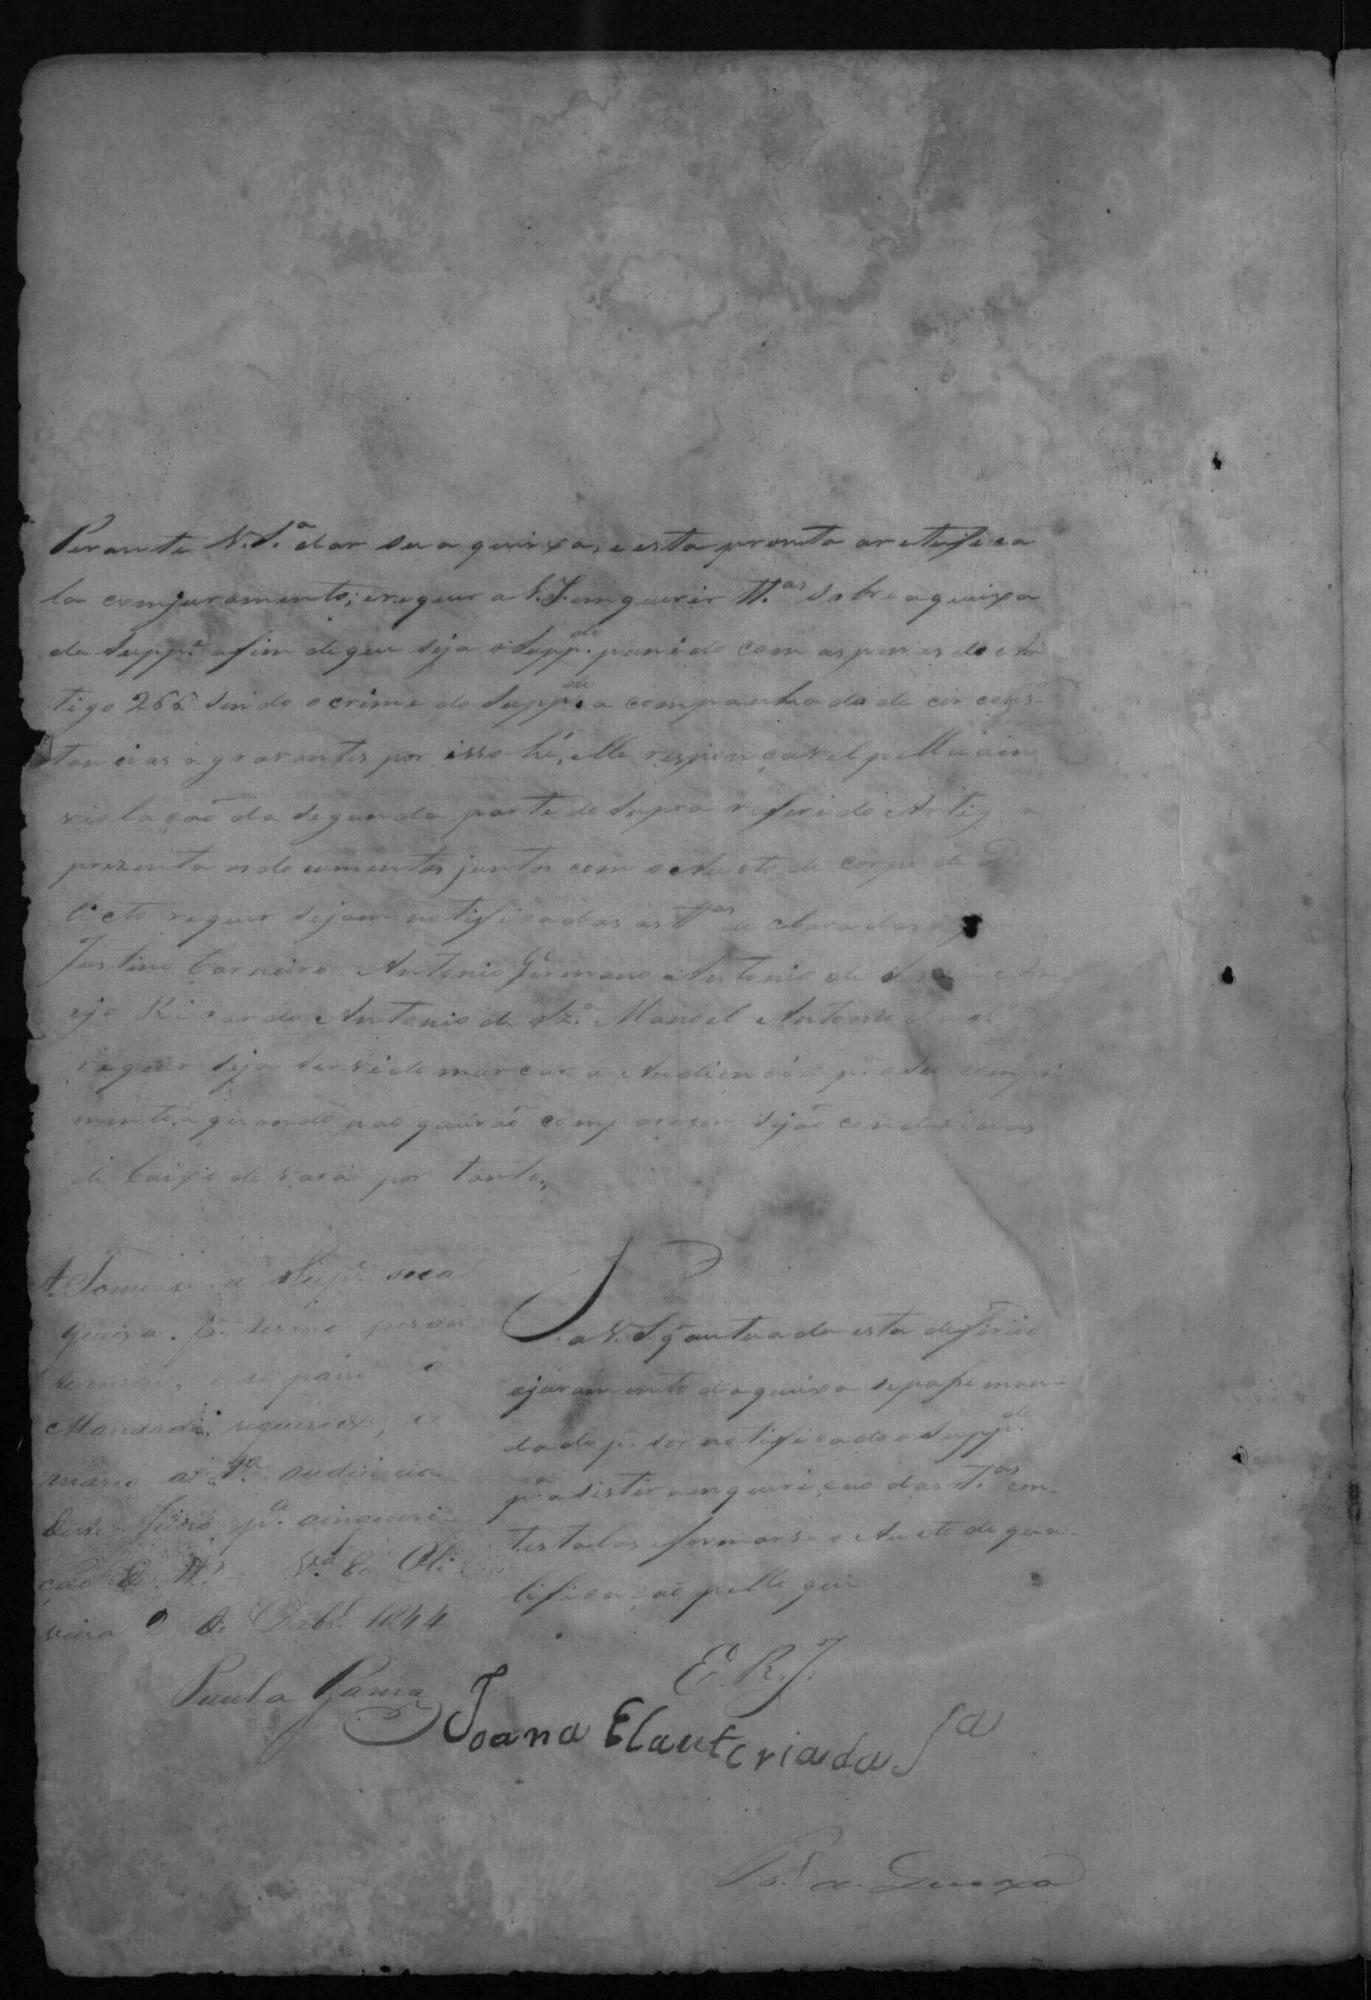 Perante V. S.ª dar sua queixa, e esta pronta aretefica
la comjuramento; erequer a V. S. emquerir tt.as sobre aquixa
da Supp.e afim de que seja o Supp.do punido com as penas do Ar
tigo 266 sendo o crime do Supp.do a companhado de circons-
tancias agravantes por isso hé, elle responçavel pella
violação da segunda parte do Supra referido Artigo
prezenta os documentos junto com o Aucto de corpo de De
licto requer sejam notificadas as tt.as declaradas
Justino Carneiro Antonio Germano Antonio de
Ricardo Antonio de Sz.ª Manoel Antonio
requer seja servido marcar a Audiencia p.ª o seu compri
mento, e quando não queirão comparecer sejão conduzidas
de baixo de vara por tanto,,
A. Tome-se a Supp.e sua
queixa. p.r termo
e se passe o
Mandado requerido, e
marco a 1.ª audiencia
deste Juizo p.ª ainqueri-
ção de tt.as V.ª de Oli
veira 2 de 1844
Paula Gama
P. a V. S. q autuada esta defirido
ojuramento daqueixa sepase man-
dado p.ª ser notificado o Supp.do
p.ª asistir ainquirição das tt.as con-
testalas eformarse o Aucto de qua-
lificação pello que
E. R. J.
Joana Elauteriada S.a
de Queixa